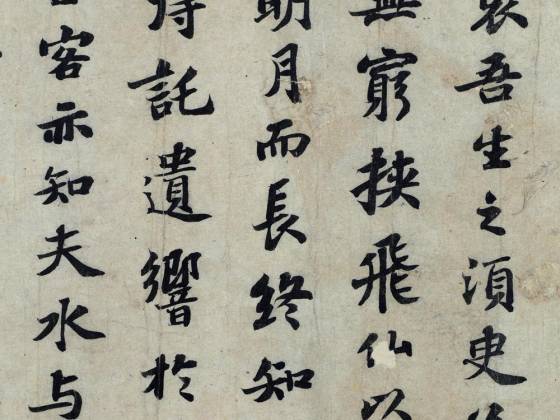 哀吾生之湏臾
無窮挾飛仙以
明月而長終知
得託遺響於
客亦知夫水与